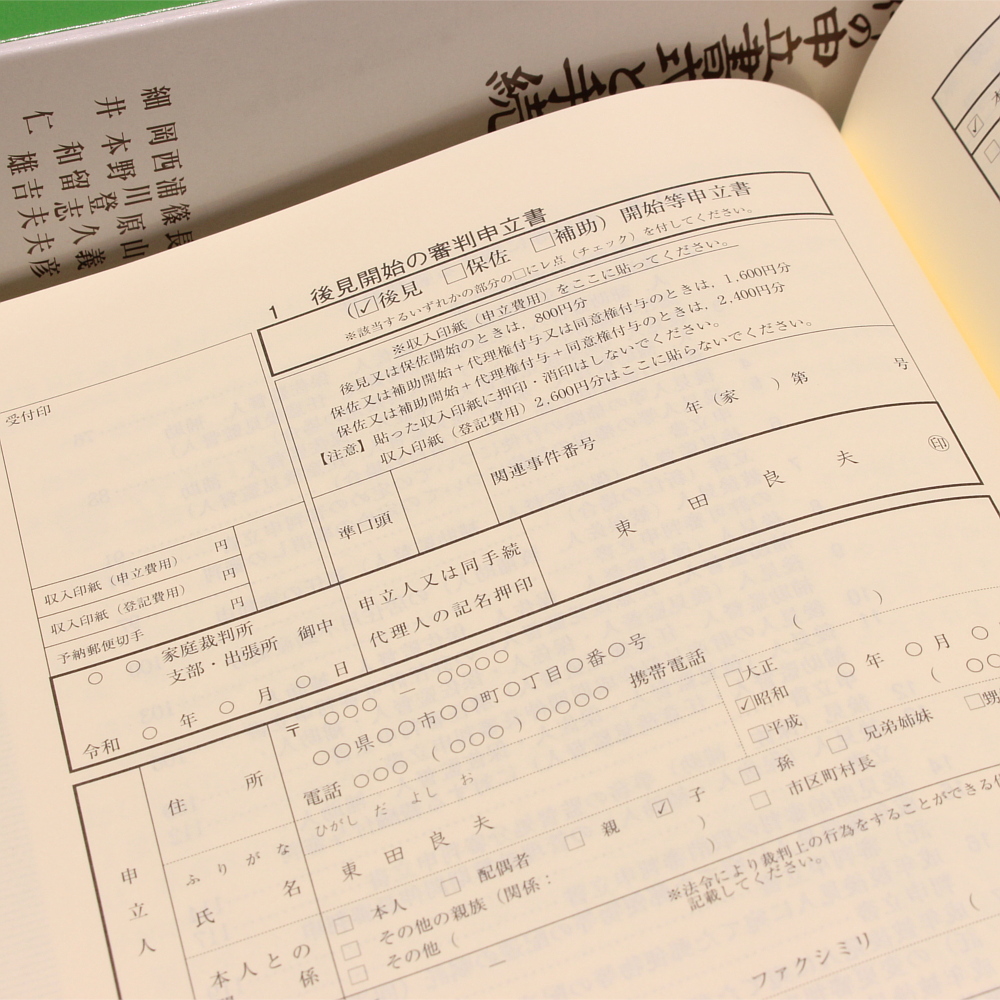 の申立書式と手続
細岡西浦篠長
井本野川原山
仁和留登久義
雄吉夫志夫彦
1 後見開始の審判申立書
(☑後見 □保佐 □補助) 開始等申立書
※該当するいずれかの部分の□にレ点(チェック)を付してください。
※収入印紙(申立費用)をここに貼ってください。
後見又は保佐開始のときは，800円分
保佐又は補助開始+代理権付与又は同意権付与のときは，1,600円分
保佐又は補助開始+代理権付与+同意権付与のときは，2,400円分
【注意】貼った収入印紙に押印・消印はしないでください。
収入印紙(登記費用)2,600円分はここに貼らないでください。
受付印
収入印紙(申立費用) 円
収入印紙(登記費用) 円
予納郵便切手 円
準口頭
関連事件番号 年(家 )第 号
○ ○ 家庭裁判所
支部・出張所 御中
令和 ○ 年 ○ 月 ○ 日
申立人又は同手続
代理人の記名押印
東田良夫 ㊞
申立人
住所
〒 ○○○ － ○○○○
○○県○○市○○町○丁目○番○号
電話 ○○○ (○○○) ○○○○ 携帯電話 ( )
ふりがな
ひがし だ よし お
氏名
東田良夫
□大正
☑昭和 ○ 年 ○ 月 ○
□平成 ( ○○
本人との
係
□ 本人 □ 配偶者 □ 親 ☑ 子 □ 孫 □ 兄弟姉妹 □甥
□ その他の親族(関係: ) □ 市区町村長
□ その他( )
※法令により裁判上の行為をすることができる
記載してください。
ファクシミリ (